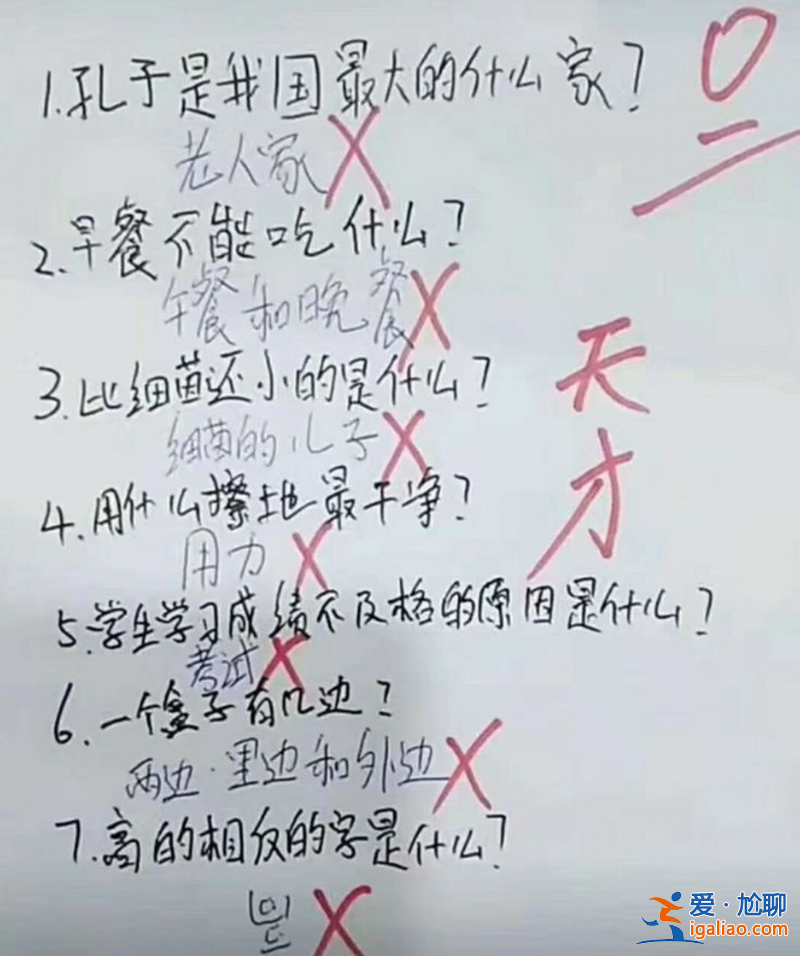 1.孔子是我国最大的什么家?
0
老人家
2.早餐不能吃什么?
午餐和晚餐
3.比细菌还小的是什么?
细菌的儿子
天才
4.用什么擦地最干净?
用力
5.学生学习成绩不及格的原因是什么?
考试
6.一个盒子有几边?
两边.里边和外边
7.高的相反的字是什么?
爱·尬聊
igaliao.com